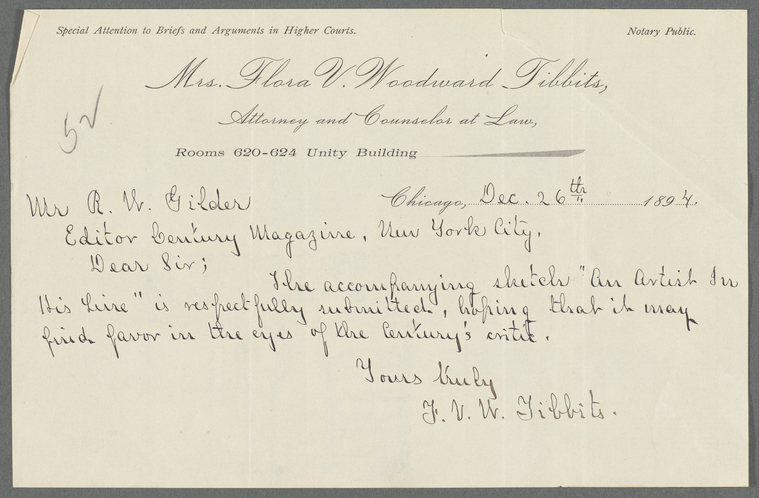 Special Attention to Briefs and Arguments in Higher Courts. Notary Public.
Mrs. Flora V. Woodward Tibbits,
Attorney and Counselor at Law,
52
Rooms 620-624 Unity Building
Chicago, Dec. 26th 1894.
Mr R. W. Gilder
Editor Century Magazine, New York City.
Dear Sir;
The accompanying sketch "An Artist In
His Line" is respectfully submitted, hoping that it may
find favor in the eyes of the Century's critic.
Yours truly
F. V. W. Tibbits.